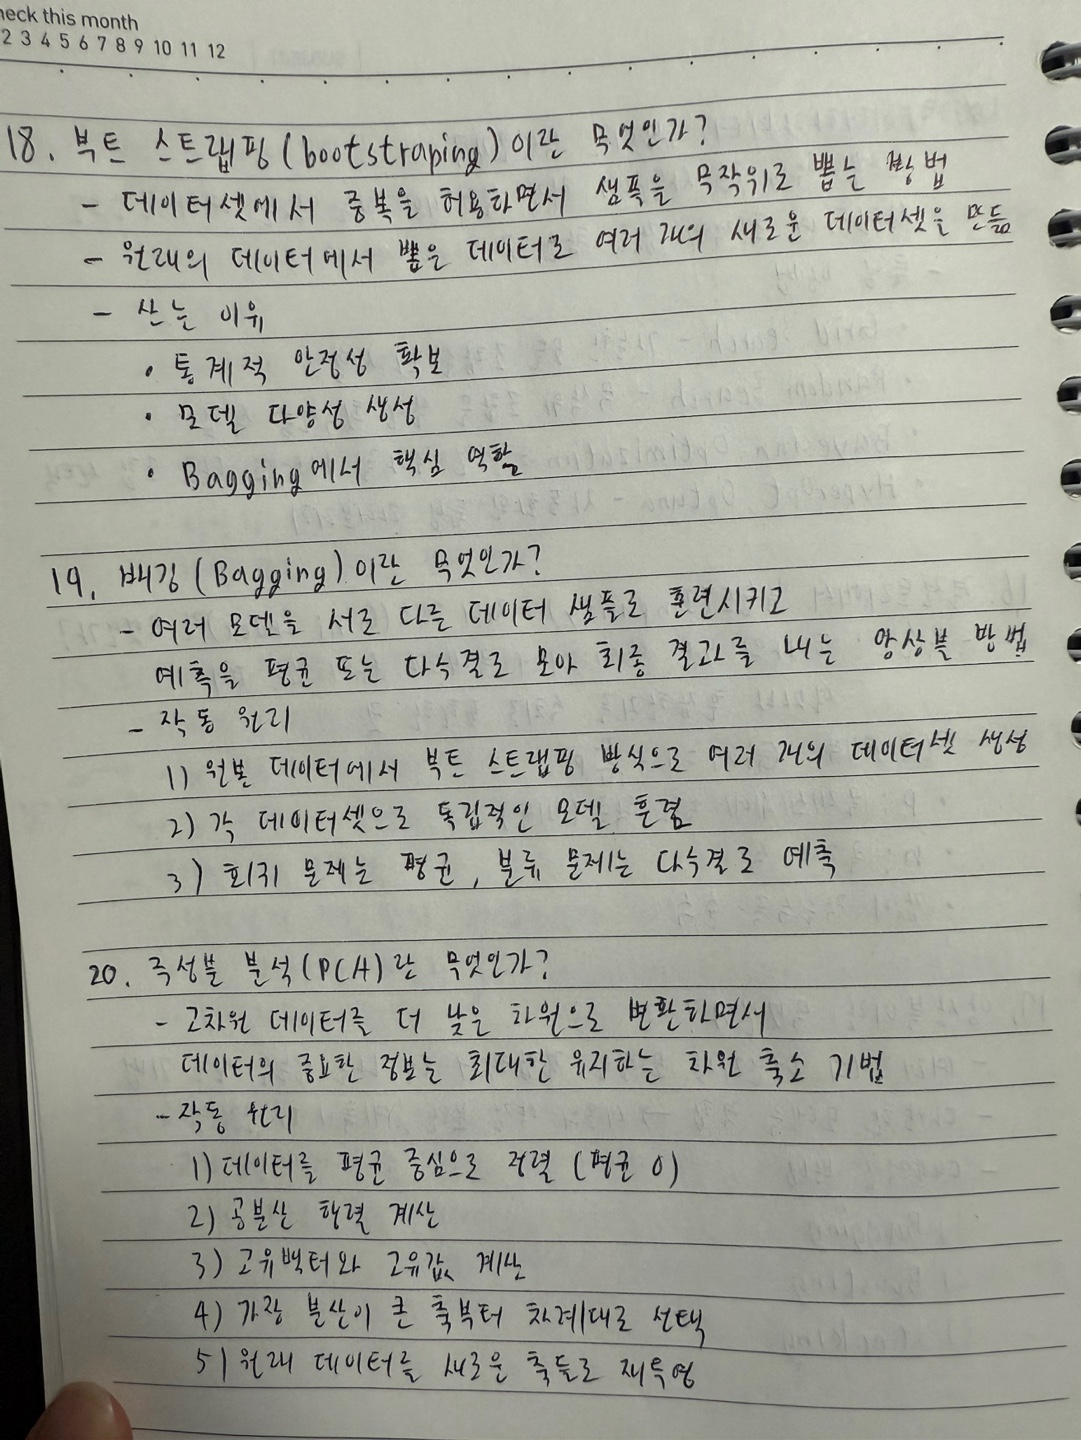 heck this month
2 3 4 5 6 7 8 9 10 11 12
18. 부트 스트랩핑(bootstraping)이란 무엇인가?
- 데이터셋에서 중복을 허용하면서 샘플을 무작위로 뽑는 방법
- 원래의 데이터에서 뽑은 데이터로 여러 개의 새로운 데이터셋을 만듦
- 쓰는 이유
• 통계적 안정성 확보
• 모델 다양성 생성
• Bagging에서 핵심 역할
19. 배깅(Bagging)이란 무엇인가?
- 여러 모델을 서로 다른 데이터 샘플로 훈련시키고
예측을 평균 또는 다수결로 모아 최종 결과를 내는 앙상블 방법
- 작동 원리
1) 원본 데이터에서 부트 스트랩핑 방식으로 여러 개의 데이터셋 생성
2) 각 데이터셋으로 독립적인 모델 훈련
3) 회귀 문제는 평균, 분류 문제는 다수결로 예측
20. 주성분 분석(PCA)란 무엇인가?
- 고차원 데이터를 더 낮은 차원으로 변환하면서
데이터의 중요한 정보는 최대한 유지하는 차원 축소 기법
- 작동 원리
1) 데이터를 평균 중심으로 정렬 (평균 0)
2) 공분산 행렬 계산
3) 고유벡터와 고유값 계산
4) 가장 분산이 큰 축부터 차례대로 선택
5) 원래 데이터를 새로운 축들로 재투영